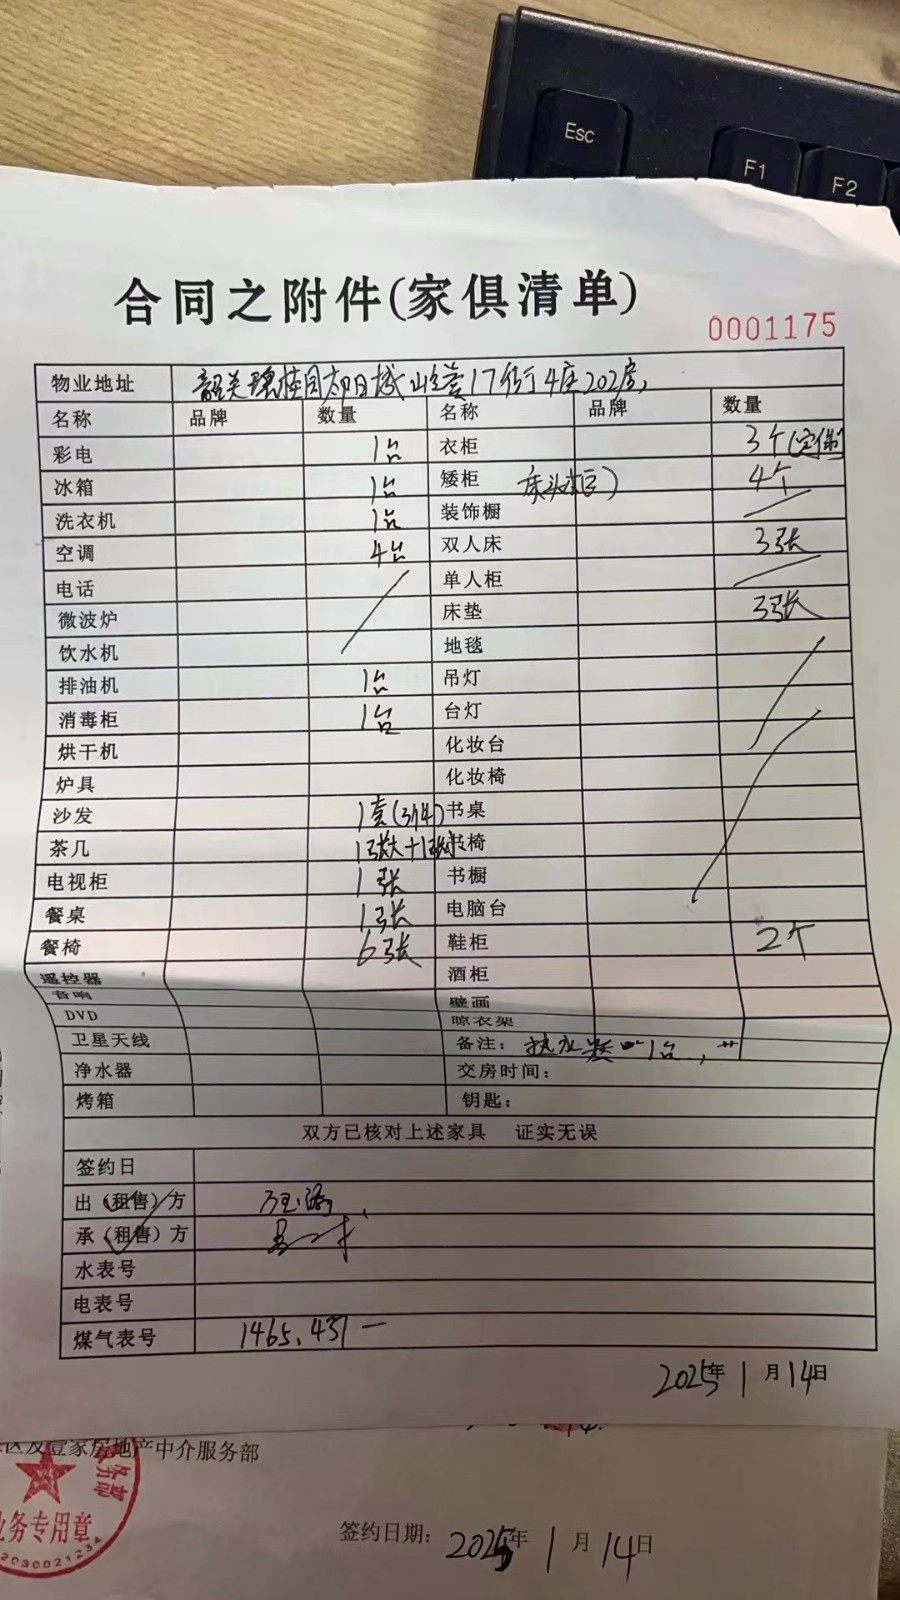 Esc
F1
F2
合同之附件(家俱清单)
0001175
物业地址 韶关碧桂园太阳城山云荟17街4座202房
名称 品牌 数量 名称 品牌 数量
彩电 1台 衣柜 3个(定制)
冰箱 1台 矮柜 床头柜) 4个
洗衣机 1台 装饰橱
空调 4台 双人床 3张
电话 单人柜
微波炉 床垫 3张
饮水机 地毯
排油机 1台 吊灯
消毒柜 1台 台灯
烘干机 化妆台
炉具 化妆椅
沙发 1套(3件) 书桌
茶几 1张大+1张 椅
电视柜 1张 书橱
餐桌 1张 电脑台
餐椅 6张 鞋柜 2个
遥控器 酒柜
音响 壁画
DVD 晾衣架
卫星天线 备注: 热水器 1台
净水器 交房时间:
烤箱 钥匙:
双方已核对上述家具 证实无误
签约日
出(租售)方
承(租售)方
水表号
电表号
煤气表号 1465.431
2025年1月14日
区及壹家房地产中介服务部
务部
业务专用章
2030021234
签约日期: 2025年1月14日